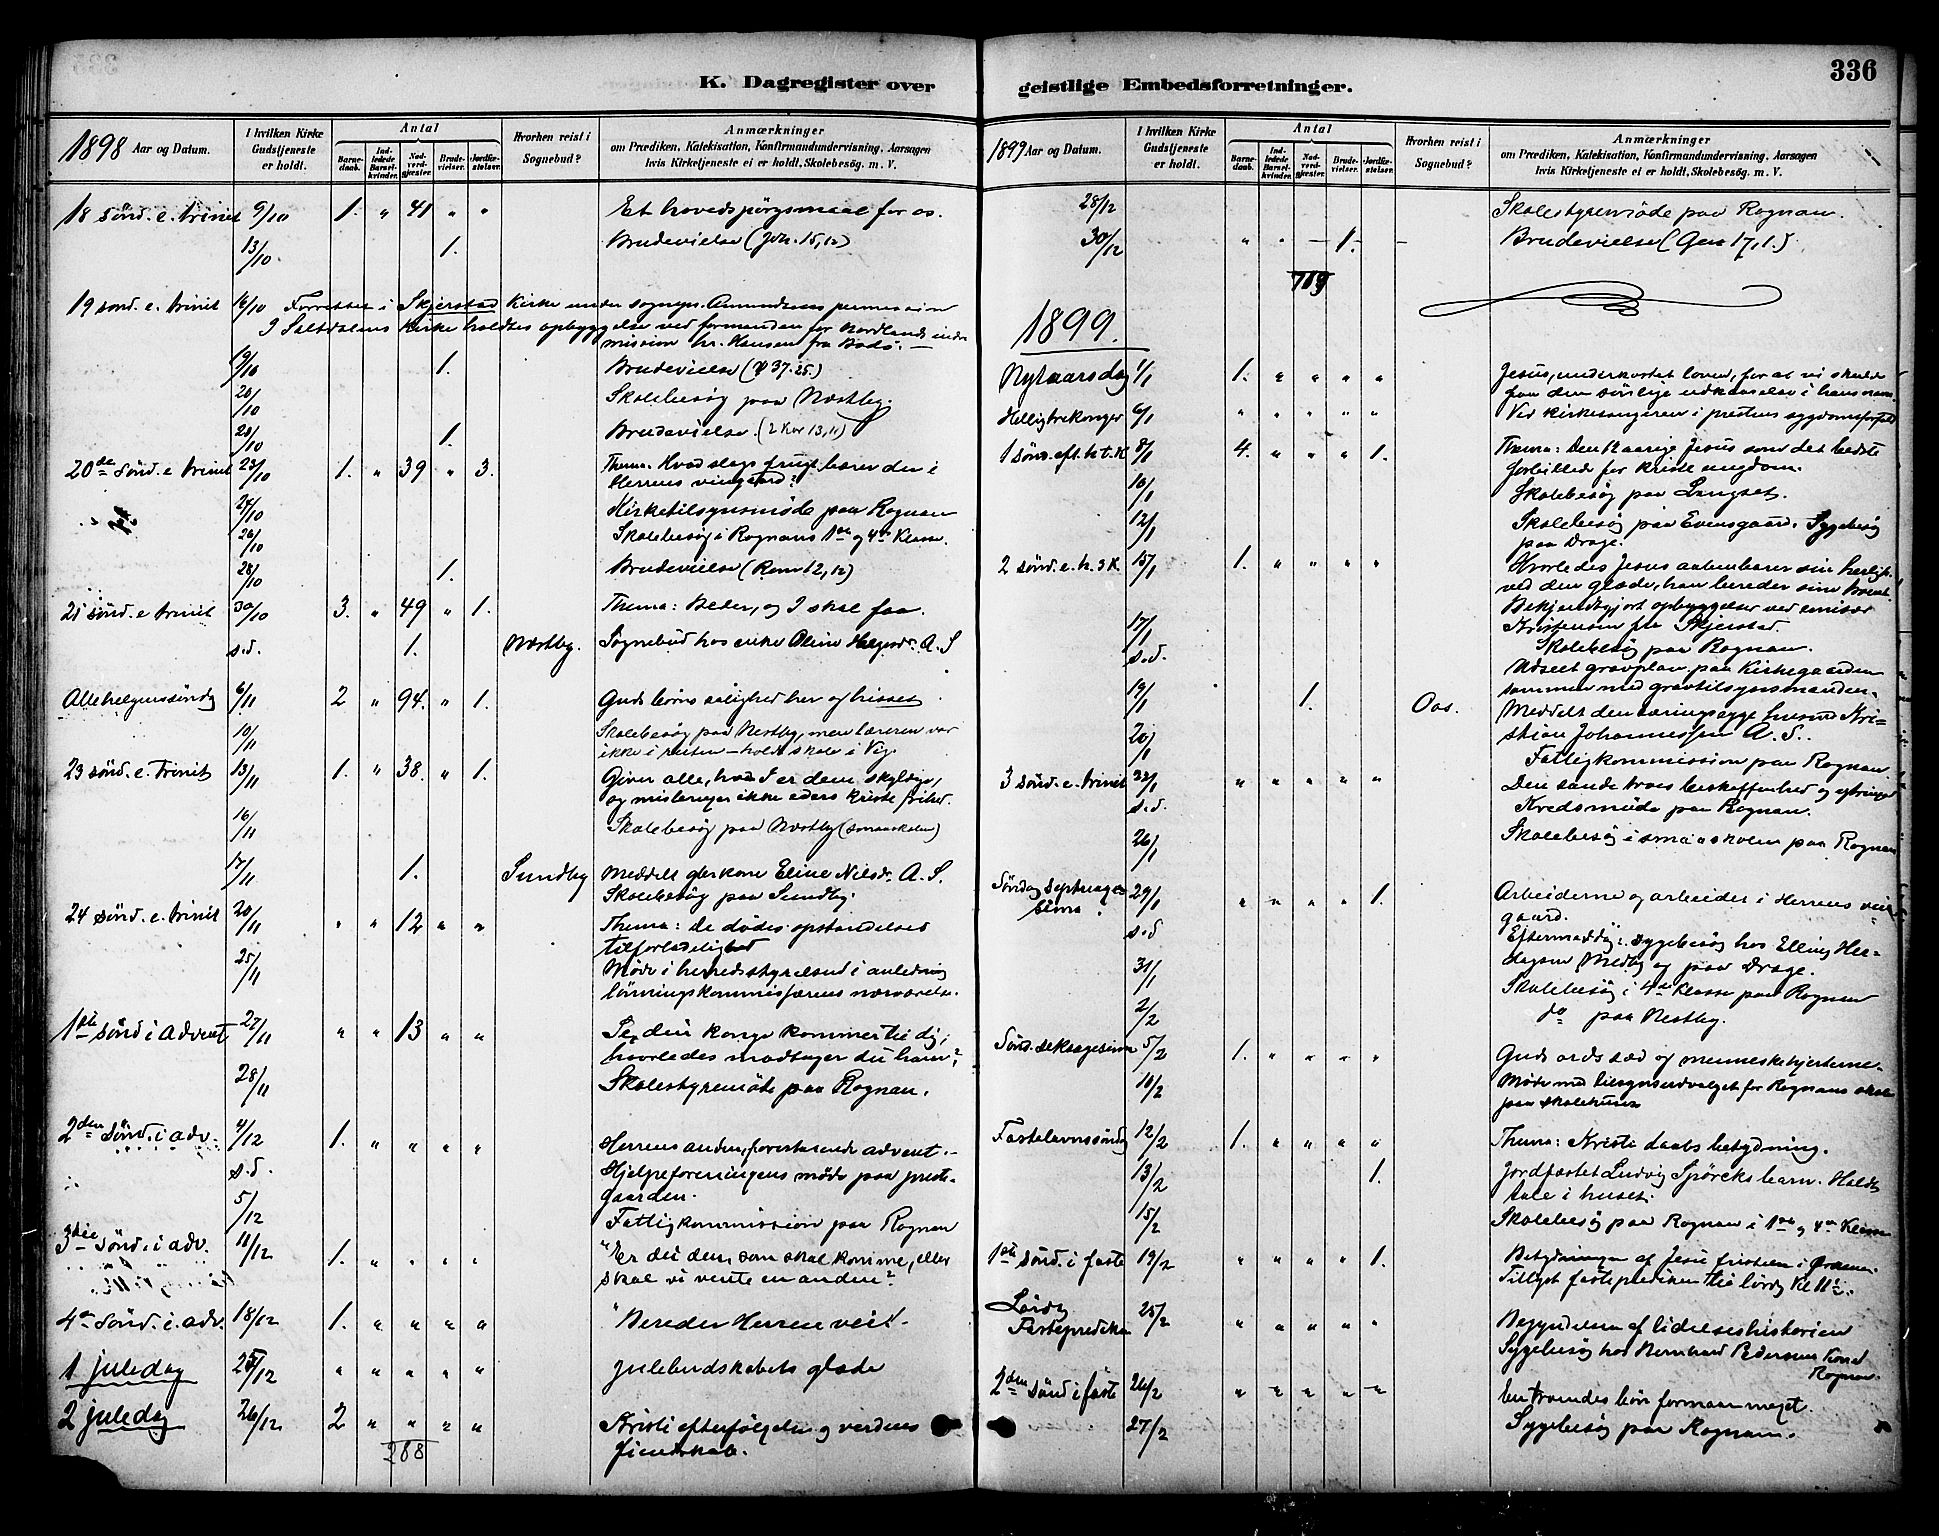 336
K. Dagregister over
geistlige Embedsforretninger.
1898 Aar og Datum.
I hvilken Kirke Gudstjeneste er holdt.
Antal
Barne-daab.
Ind-ledede Barsel-kvinder.
Nad-verd-gjæster.
Brude-vielser.
Jordfæ-stelser.
Hvorhen reist i Sognebud?
Anmærkninger
om Prædiken, Katekisation, Konfirmandundervisning. Aarsagen
hvis Kirketjeneste ei er holdt, Skolebesøg. m. V.
18 sønd. e. trinit 9/10 1. " 41 " " Et hovedspørgsmaal for os.
13/10. 1. Brudevielse (Joh. 15,12)
19 sønd. e. trinit 16/10 Forrettet i Skjerstad Kirke under sognepr. Amundsens permission
I Saltdalens Kirke holdtes opbyggelse ved formanden for Nordlands indre
mission hr. Hansen fra Bodø. —
19/10 1. Brudevielse (ψ 37.25.)
20/10 Skolebesøg paa Næstby.
1. Brudevielse. (2 Kor 13,11)
20de sønd. e trinit 23/10 1. " 39 " 3. Thema. Hvad slags frugt bærer du i
Herrens vingaard?
24/10 Kirketilsynsmøde paa Rognan
26/10 Skolebesøg i Rognans 1ste og 4de Klasse.
28/10 1. Brudevielse (Rom 12,12)
21 sønd. e trinit 30/10 3. " 49 " 1. Thema: Beder, og I skal faa.
s.d. 1. Næstby. Sognebud hos enke Oline A. S
Allehelgenssøndag 6/11 2 " 94. " 1. Guds børns salighed her og hisset
10/11 Skolebesøg paa Nestby, men læreren var
ikke i - holdt skole i Vig.
23 sønd. e. Trinit 13/11 1. " 38. " 1. Giver alle, hvad I er dem skyldige,
og misbruger ikke eders kristne frihed.
16/11 Skolebesøg paa Næstby (smaaskolen)
17/11 1. Sundby Meddelt Eline Nilsdr. A. S.
Skolebesøg paa Sundby.
24 sønd. e. trinit 20/11 " " 12 " " Thema: De dødes opstandelses
tilforladelighed
25/11 Møde i herredsstyrelsen i anledning
lønningskommissærens nærværelse.
1ste sønd i advent 27/11 " " 13 " " Se, din konge kommer til dig,
hvorledes modtager du ham?
28/11 Skolestyremøte paa Rognan.
2den sønd. i adv. 4/12 1. " " " " Herrens anden, forestaaende advent. -
s.d. Hjelpeforeningens møde paa preste-
gaarden.
5/12 Fattigkommission paa Rognan
3die sønd. i adv. 11/12 1. " " " " "Er du den, som skal komme, eller
skal vi vente en anden?
4de sønd. i adv. 18/12 1. " " " " "Bereder Herrens vei".
1 juledag 25/12 " " " " " Julebudskabets glæde
2 juledag 26/12 2 " " " " Kristi efterfølgelse og verdens
fiendskab.
288
1899 Aar og Datum.
I hvilken Kirke Gudstjeneste er holdt.
Antal
Barne-daab.
Ind-ledede Barsel-kvinder.
Nad-verd-gjæster.
Brude-vielser.
Jordfæ-stelser.
Hvorhen reist i Sognebud?
Anmærkninger
om Prædiken, Katekisation, Konfirmandundervisning. Aarsagen
hvis Kirketjeneste ei er holdt, Skolebesøg m. V.
28/12 Skolestyremøde paa Rognan.
30/12 " " — 1. — Brudevielse (Gen 17,1.)
1899.
Nytaarsdag 1/1 1. " " " " Jesus, underkastet loven, for at vi skulde
faa den sønlige udkaarelse i hans navn.
Helligtrekonger 6/1 " " " " " Ved kirkesangeren i prestens sygdomsforfald
1 sønd. eft. h. t. K 8/1 4. " " " 1. Thema: Den 12 aarige Jesus som det bedste
forbillede for kristen ungdom.
10/1 Skolebesøg paa Langset.
12/1 Skolebesøg paa Evensgaard. Sygebesøg
paa Drage.
2 sønd. e. h. 3 K. 15/1 1. " " " " Hvorledes Jesus aabenbarer sin herligh.
ved den glæde, han bereder sine
Bekjendtgjort opbyggelse ved emissær
Kristensen fra Skjerstad.
17/1 Skolebesøg paa Rognan.
s.d. gravplan paa Kirkegaarden
sammen med gravtilsynsmanden.
19/1 1. Oas. Meddelt den tæringssyge husmd Kri-
stian Johannessen A. S.
20/1 Fattigkommission paa Rognan
3 sønd. e. trinit 22/1 " " " " " Den sande troes beskaffenhed og ytringer
s.d. Kredsmøde paa Rognan.
26/1 Skolebesøg i smaaskolen paa Rognan
Søndag septuage-
sima. 29/1 " " " " 1. Arbeiderne og arbeidet i Herrens vin-
gaard.
s.d Eftermiddag: sygebesøg hos Elling Her-
Medby og paa Drage.
31/1 Skolebesøg i 4de Klasse paa Rognan
2/2 do paa Nestby.
Sønd. seksagesima 5/2 1. " " " " Guds ords sæd og menneskehjerterne.
10/2 Møde med tilsynsudvalget for Rognans skole
paa skolehuset
Fastelavnssøndag 12/2 1. " " " " Thema: Kristi daabs betydning.
13/2 1. Jordfæstet Ludvig Spørcks barn. Holdt
tale i huset.
15/2 Skolebesøg paa Rognan i 1ste og 4de Klasse
1ste sønd. i faste 19/2 " " " " 1. Betydningen af Jesu fristelse i Ørkenen.
Tillyst fasteprediken til lørdag Kl 11
Lørdag
Fasteprediken 25/2 " " " " " Begyndelsen af lidelseshistorien
Sygebesøg hos Bernhard Pedersens Kone
Rognan.
2den sønd i faste 26/2 " " " " " En troendes bøn formaar meget
27/2 Sygebesøg paa Rognan.